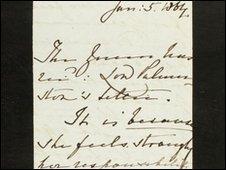 Jan: 5. 1864.
The Queen has
recd: Lord Palmer
ston's letter.
It is because
she feels strongly
her responsibility